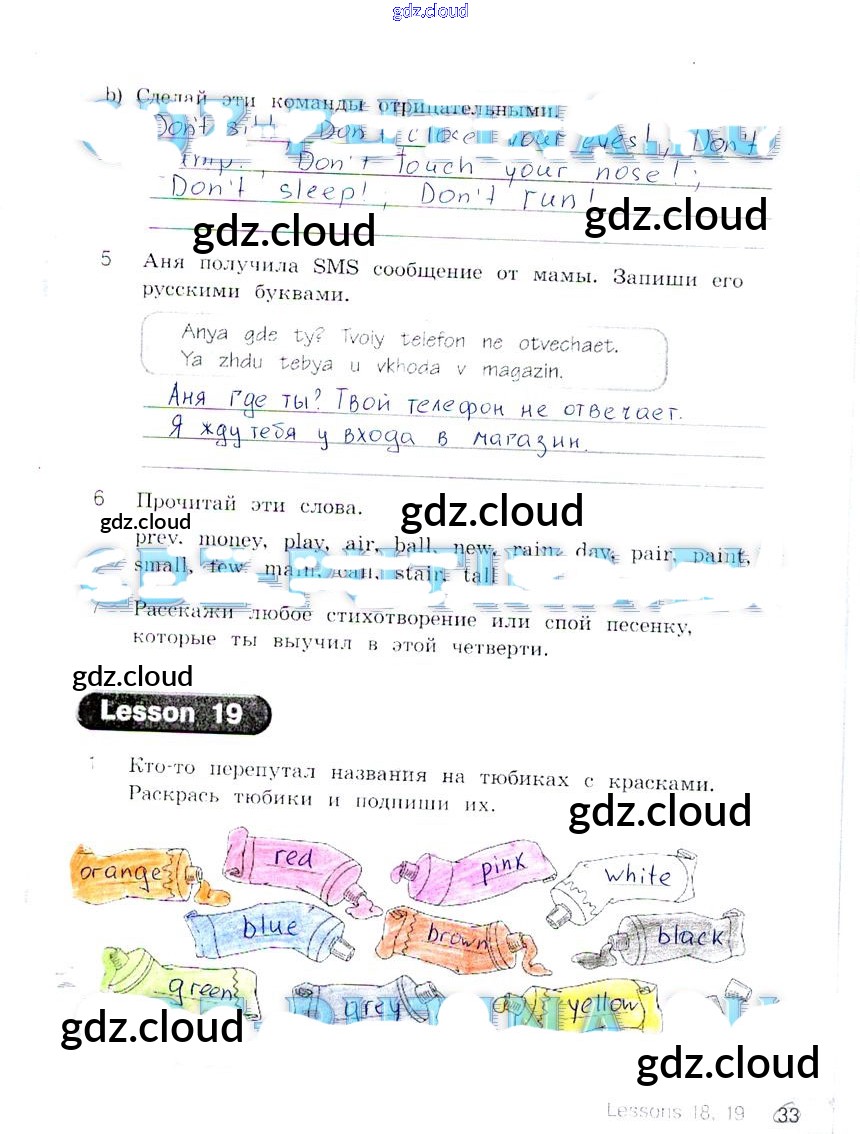 gdz.cloud
b) Сделай эти команды отрицательными.
Don't sit!, Don't close your eyes!, Don't
Don't touch your nose!;
Don't sleep!; Don't run!
gdz.cloud gdz.cloud
5 Аня получила SMS сообщение от мамы. Запиши его
русскими буквами.
Anya gde ty? Tvoiy telefon ne otvechaet.
Ya zhdu tebya u vkhoda v magazin.
Аня где ты? Твой телефон не отвечает.
Я жду тебя у входа в магазин.
6 Прочитай эти слова.
gdz.cloud gdz.cloud
prey, money, play, air, ball, new, rain, day, pair, paint,
small, few, main, stair, tall
7 Расскажи любое стихотворение или спой песенку,
которые ты выучил в этой четверти.
gdz.cloud
Lesson 19
1 Кто-то перепутал названия на тюбиках с красками.
Раскрась тюбики и подпиши их.
gdz.cloud
orange red pink white
blue brown black
green grey yellow
gdz.cloud
gdz.cloud
Lessons 18, 19 33